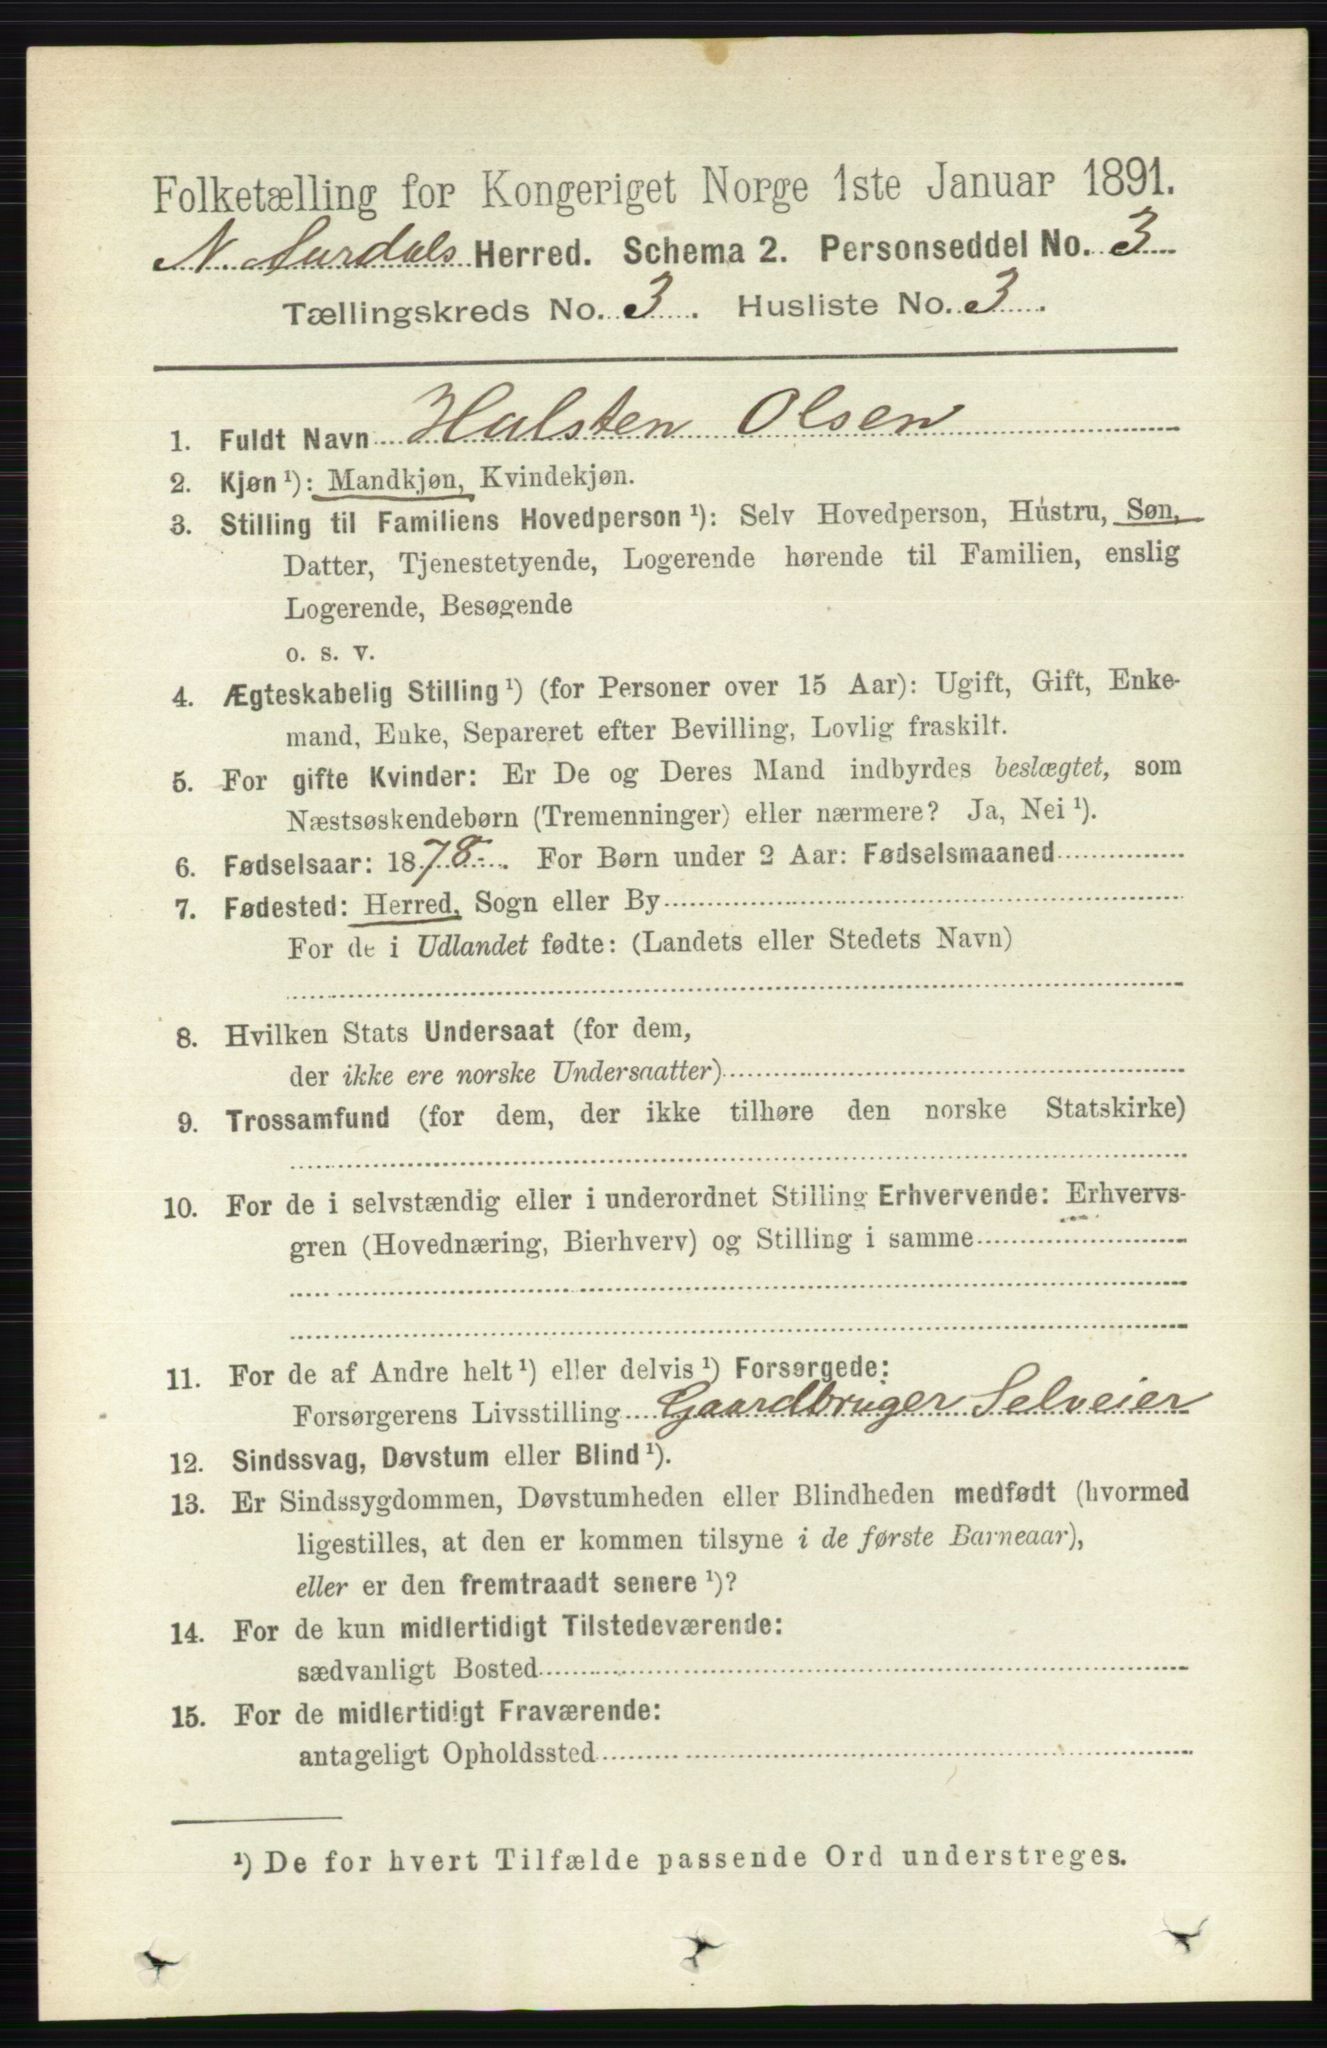 Folketælling for Kongeriget Norge 1ste Januar 1891.
N. Aurdals Herred. Schema 2. Personseddel No. 3
Tællingskreds No. 3. Husliste No. 3.
1. Fuldt Navn Halsten Olsen
2. Kjøn ¹): Mandkjøn, Kvindekjøn.
3. Stilling til Familiens Hovedperson ¹): Selv Hovedperson, Hustru, Søn,
Datter, Tjenestetyende, Logerende hørende til Familien, enslig
Logerende, Besøgende
o. s. v.
4. Ægteskabelig Stilling ¹) (for Personer over 15 Aar): Ugift, Gift, Enke-
mand, Enke, Separeret efter Bevilling, Lovlig fraskilt.
5. For gifte Kvinder: Er De og Deres Mand indbyrdes beslægtet, som
Næstsøskendebørn (Tremenninger) eller nærmere? Ja, Nei ¹).
6. Fødselsaar: 1878. For Børn under 2 Aar: Fødselsmaaned
7. Fødested: Herred, Sogn eller By
For de i Udlandet fødte: (Landets eller Stedets Navn)
8. Hvilken Stats Undersaat (for dem,
der ikke ere norske Undersaatter)
9. Trossamfund (for dem, der ikke tilhøre den norske Statskirke)
10. For de i selvstændig eller i underordnet Stilling Erhvervende: Erhvervs-
gren (Hovednæring, Bierhverv) og Stilling i samme
11. For de af Andre helt ¹) eller delvis ¹) Forsørgede:
Forsørgerens Livsstilling Gaardbruger Selveier
12. Sindssvag, Døvstum eller Blind ¹).
13. Er Sindssygdommen, Døvstumheden eller Blindheden medfødt (hvormed
ligestilles, at den er kommen tilsyne i de første Barneaar),
eller er den fremtraadt senere ¹)?
14. For de kun midlertidigt Tilstedeværende:
sædvanligt Bosted
15. For de midlertidigt Fraværende:
antageligt Opholdssted
¹) De for hvert Tilfælde passende Ord understreges.